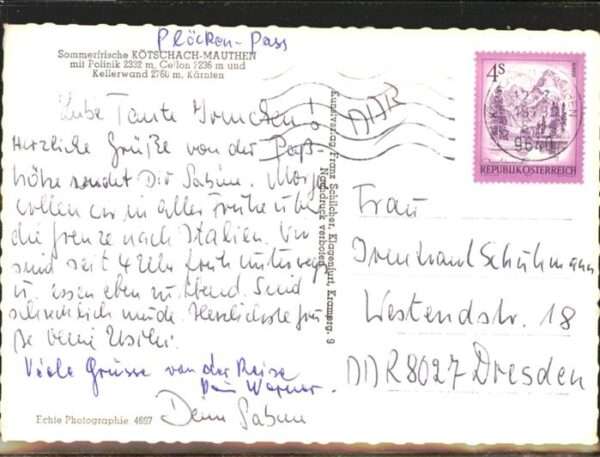 Plöcken-Pass
Sommerfrische KÖTSCHACH-MAUTHEN
mit Polinik 2332 m, Cellon 2236 m und
Kellerwand 2760 m, Kärnten
Liebe Tante Irmchen!
Herzliche Grüße von der Paß-
höhe sendet Dir Sabine. Morgen
wollen wir in aller Frühe über
die Grenze nach Italien. Wir
sind seit 4 Uhr früh unterwegs
u. essen eben zu Abend. Sind
schrecklich müde. Herzlichste Grü-
ße Deine
Viele Grüsse von der Reise
Dein Werner.
Deine Sabine
Echte Photographie 4697
Kunstverlag Franz Schilcher, Klagenfurt, Kramerg. 9
Nachdruck verboten
DDR
4S
REPUBLIK ÖSTERREICH
Frau
Irmtraut Schuhmann
Westendstr. 18
DDR 8027 Dresden